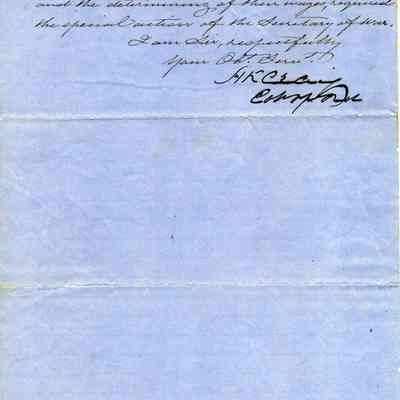 and the determining of their wages required
the special action of the Secretary of War.
I am Sir, respectfully
Your Ob. Serv. T
H K Craig
Col of Ord